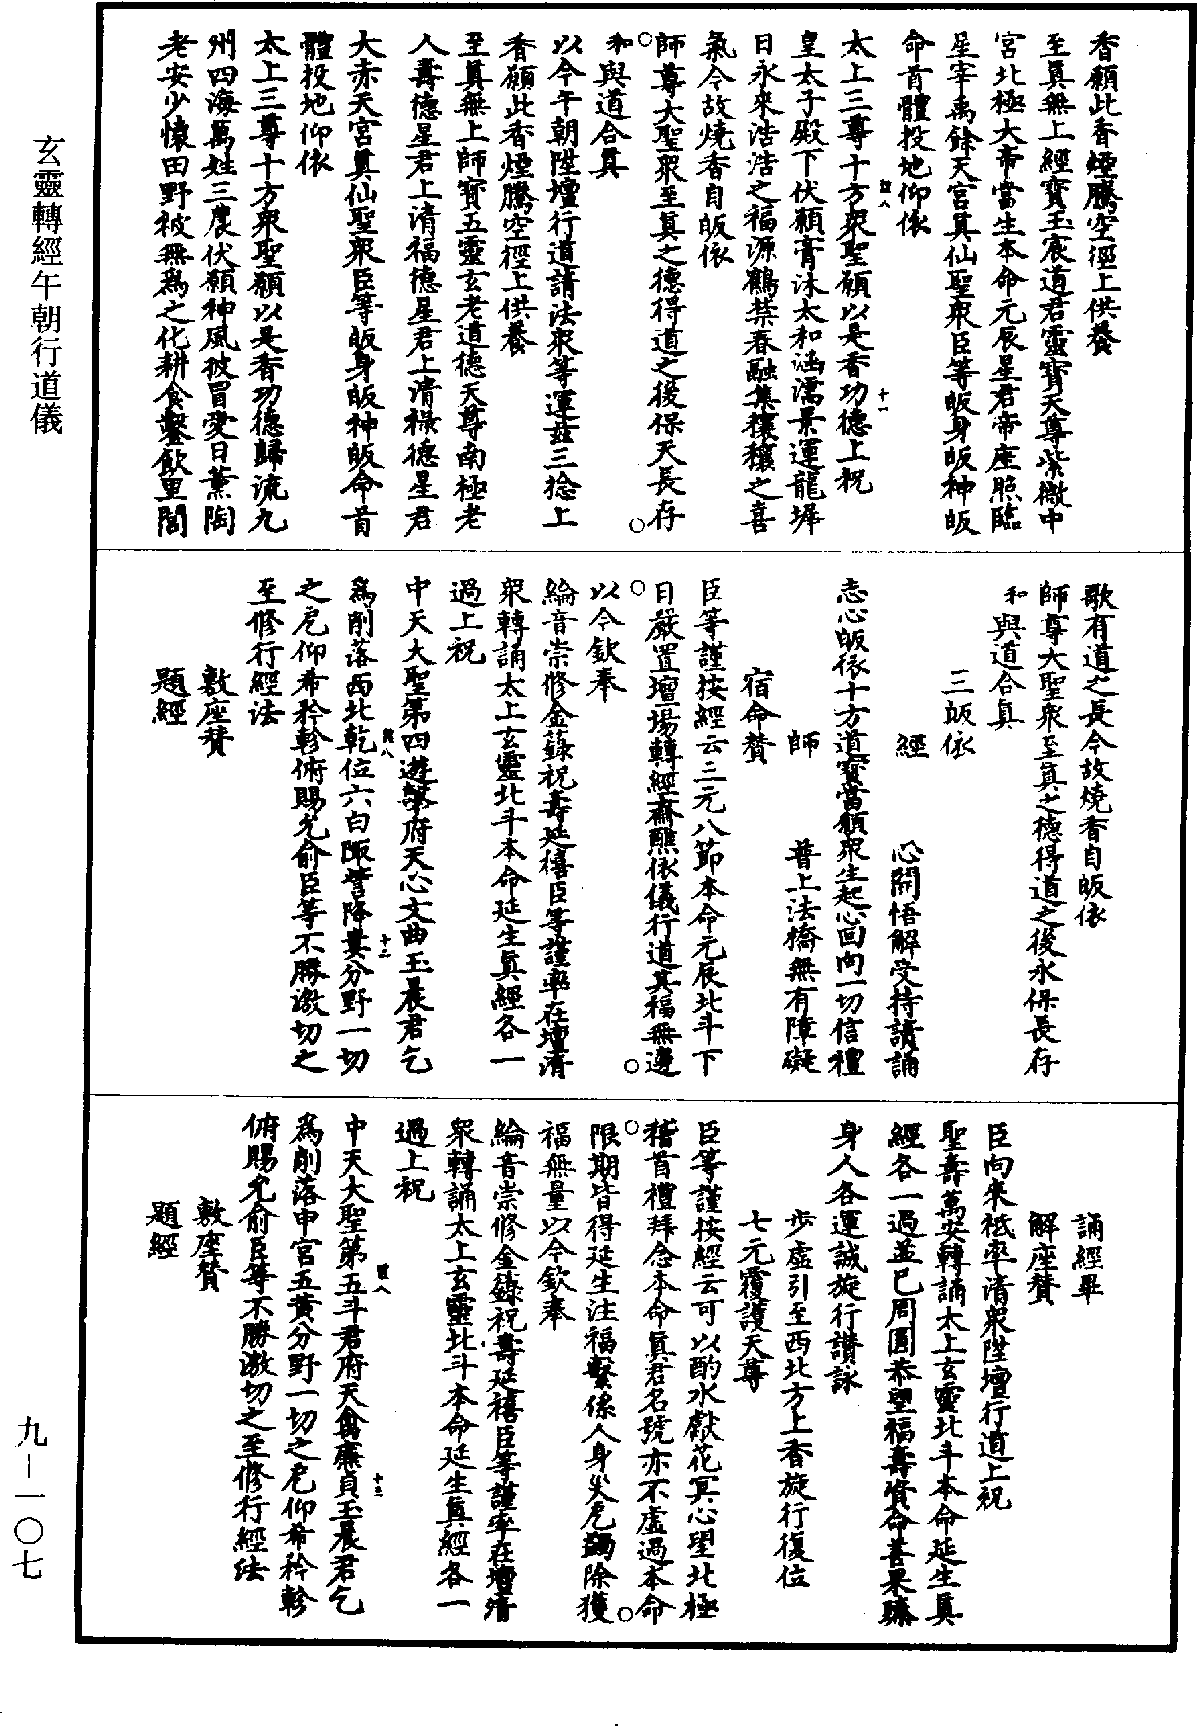 香願此香煙騰空徑上供養
至真無上經寶玉宸道君靈寶天尊紫微中
宮北極大帝當生本命元辰星君帝座照臨
星宰禹餘天宮真仙聖衆臣等皈身皈神皈
命首體投地仰依
太上三尊十方衆聖願以是香功德上祝
皇太子殿下伏願膏沐太和涵濡景運龍墀
日永來浩浩之福源鶴禁春融集穰穰之喜
氣今故燒香自皈依
師尊大聖衆至真之德得道之後保天長存
和與道合真
以今午朝陞壇行道請法衆等運茲三捻上
香願此香煙騰空徑上供養
至真無上師寶五靈玄老道德天尊南極老
人壽德星君上清福德星君上清祿德星君
大赤天宮真仙聖衆臣等皈身皈神皈命首
體投地仰依
太上三尊十方衆聖願以是香功德歸流九
州四海萬姓三農伏願神風被冒愛日薰陶
老安少懷田野被無為之化耕食鑿飲里閭
歌有道之長今故燒香自皈依
師尊大聖衆至真之德得道之後永保長存
和與道合真
三皈依
經 心開悟解受持讀誦
志心皈依十方道寶當願衆生起心回向一切信禮
師 普上法橋無有障礙
宿命贊
臣等謹按經云三元八節本命元辰北斗下
日嚴置壇場轉經齋醮依儀行道其福無邊
以今欽奉
綸音崇修金籙祝壽延禧臣等謹率在壇清
衆轉誦太上玄靈北斗本命延生真經各一
過上祝
中天大聖第四遊㩁府天心文曲玉晨君乞
為削落西北乾位六白陬訾降婁分野一切
之厄仰希矜軫俯賜允俞臣等不勝激切之
至修行經法
敷座贊
題經
誦經畢
解座贊
臣向來祗率清衆陞壇行道上祝
聖壽萬安轉誦太上玄靈北斗本命延生真
經各一過並已周圓恭望福壽資命善果臻
身人各運誠旋行讚詠
步虛引至西北方上香旋行復位
七元覆護天尊
臣等謹按經云可以酌水獻花冥心望北極
稽首禮拜念本命真君名號亦不虛過本命
限期皆得延生注福繫係人身災厄蠲除獲
福無量以今欽奉
綸音崇修金籙祝壽延禧臣等謹率在壇清
衆轉誦太上玄靈北斗本命延生真經各一
過上祝
中天大聖第五斗君府天禽廉貞玉晨君乞
為削落中宮五黃分野一切之厄仰希矜軫
俯賜允俞臣等不勝激切之至修行經法
敷座贊
題經
玄靈轉經午朝行道儀
九—一〇七